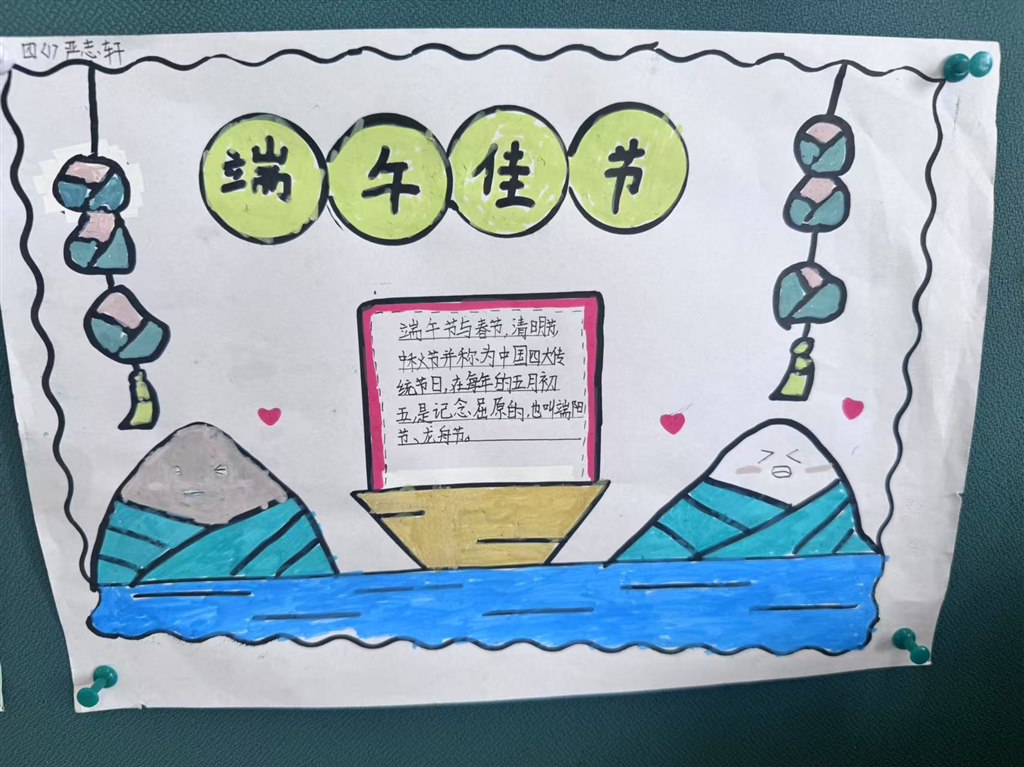 四(1)严志轩
端午佳节
端午节与春节,清明节,
中秋节并称为中国四大传
统节日,在每年的五月初
五,是记念屈原的,也叫端阳
节、龙舟节。